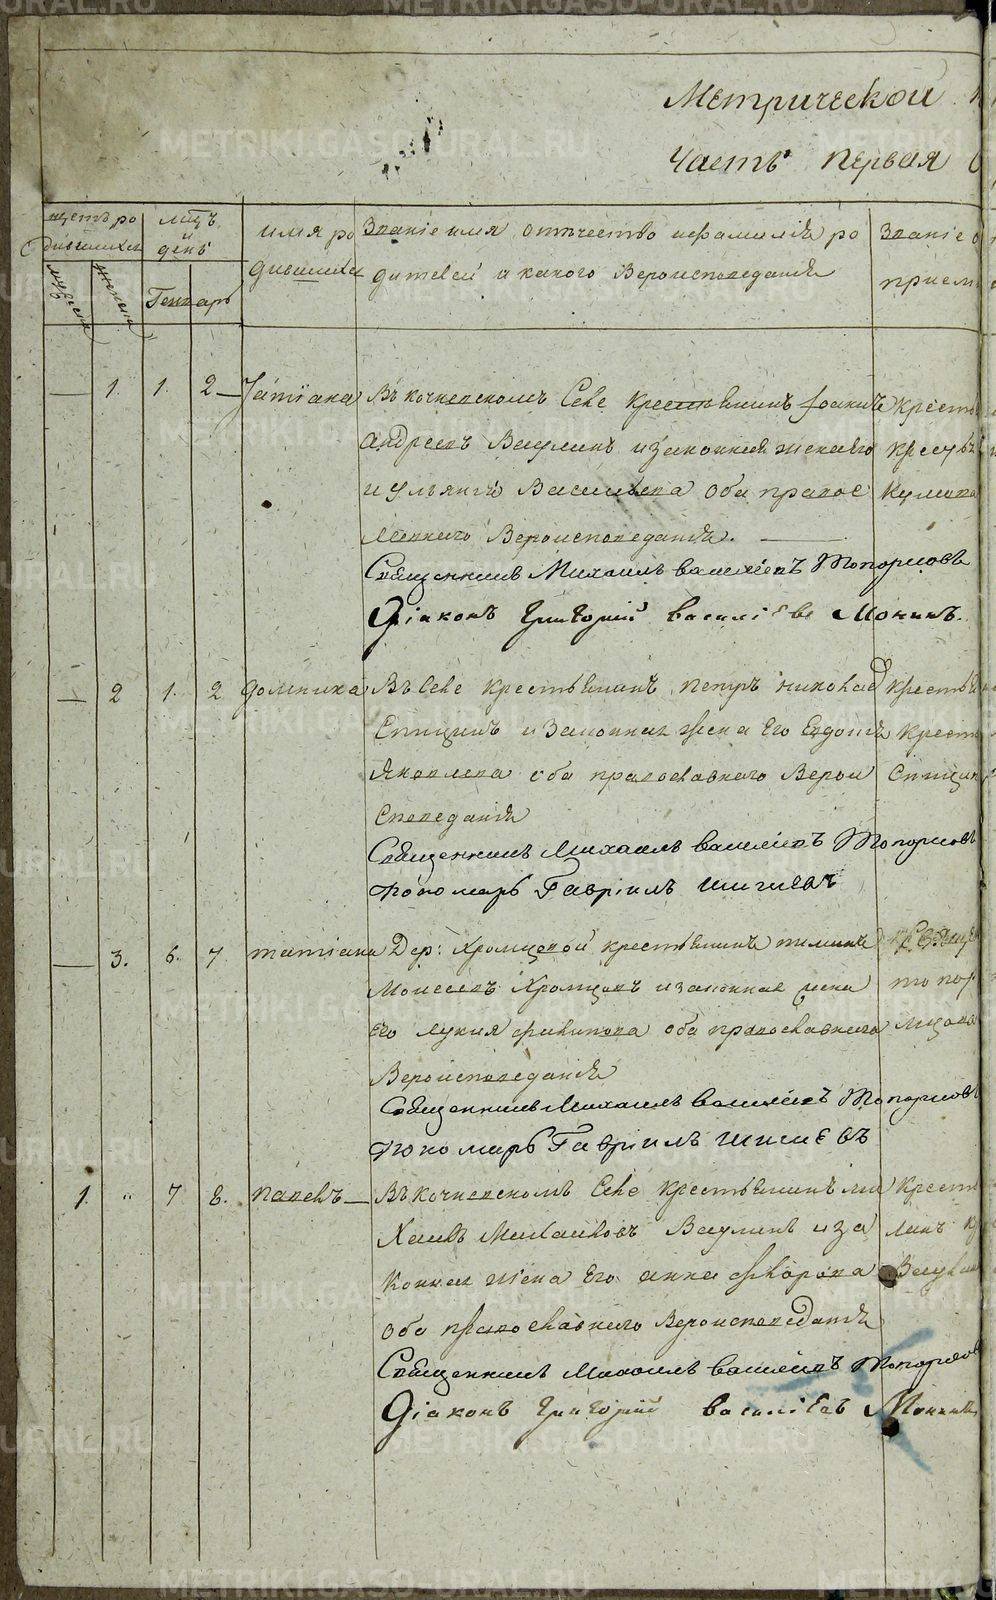 Метрической
Часть первая
щетъ ро
дившихся
мужеска
женска
мцъ
и
день
Генварь
имя ро
дившихся
Званіе имя отчество и фамилія ро
дителей и какого Вероисповеданія
Званіе
прием
1. 1. 2 Татіана
Въ кочневскомъ Селе крестьянинъ Іоаннъ
Андреевъ Ваулинъ и законная жена его
Иульянія Васильева оба правос
лавнаго Вероисповеданія.
крест
Кулико
Священникъ Михаилъ Васильевъ Топорковъ
Діаконъ Григорий Василіевъ Монинъ.
2 1. 2 Домника
Въ Селе крестьянинъ Петръ Николаев
Спицинъ и Законная жена Его Евдокія
Яковлева оба православнаго Верои
споведанія
крестья
крест
Спицин
Священникъ Михаилъ Васильевъ Топорковъ
Пономарь Гавріилъ Шишевъ
3. 6. 7. татіана
Дер: Хромцовой крестьянинъ
Моисеевъ Хромцовъ и законная жена
Его Лукия Филипова оба православнаго
Вероисповеданія
топор
Священникъ Михаилъ Васильевъ Топорковъ
Пономарь Гавріилъ Шишевъ
1. " 7 8. павелъ
Въ кочневскомъ Селе крестьянинъ ми
хаилъ Михаиловъ Ваулинъ и за
конная жена Его Анна Фролова
оба православнаго Вероисповеданія
крест
Священникъ Михаилъ Васильевъ Топорков
Діаконъ Григорий Василіевъ Монинъ
METRIKI.GASO-URAL.RU